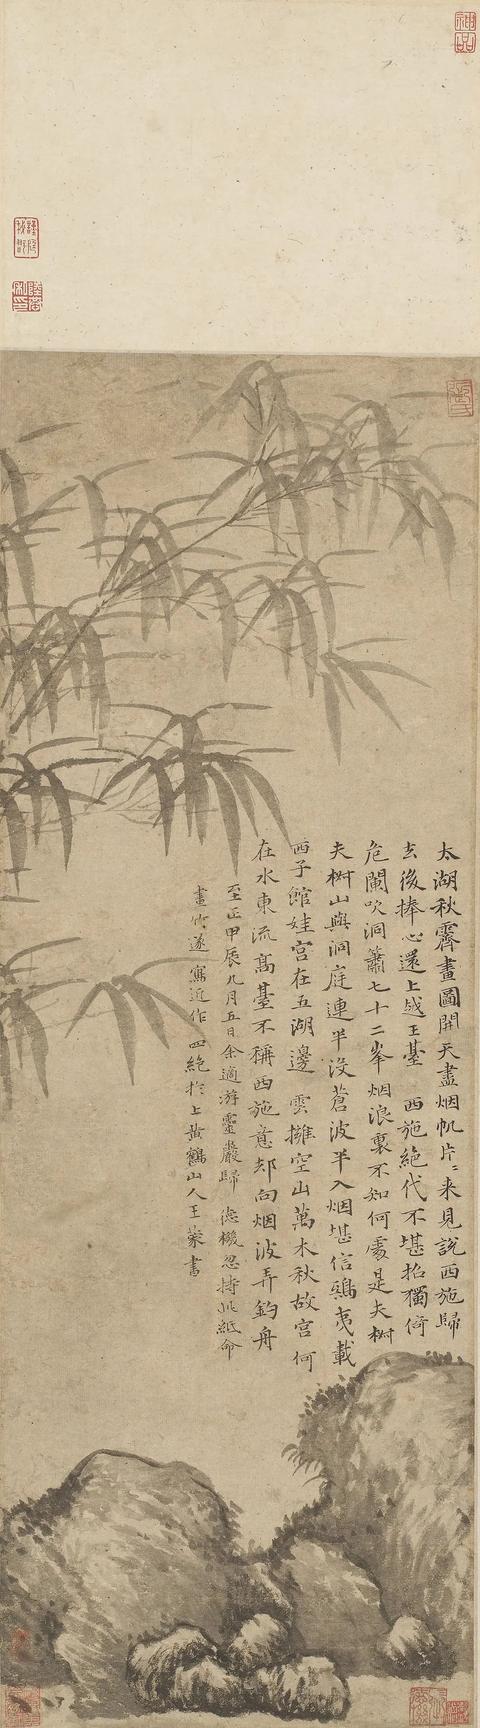 太湖秋霽畫圖開天盡烟帆片〻来見說西施歸
去後捧心還上越王臺　西施絕代不堪招獨倚
危闌吹洞簫七十二峯烟浪裏不知何處是夫椒
夫椒山與洞庭連半没蒼波半入烟堪信鴟夷載
西子館娃宫在五湖邊　雲擁空山萬木秋故宫何
在水東流髙臺不稱西施意却向烟波弄釣舟
至正甲辰九月五日余適游靈巖歸　德機忽持此紙命
畫竹遂寫近作四絕扵上黄鶴山人王蒙書
神品